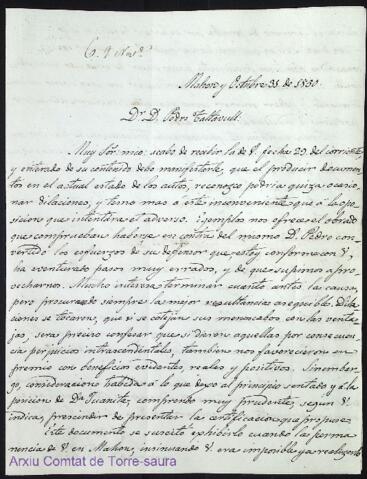 Mahon y Octubre 31 de 1830.
Dr. D. Pedro Taltavull.
Muy Sor. mio: acabo de recibir la de V. fecha 29 del corriente,
y enterado de su contenido debo manifestarle, que el producir documen-
tos en el actual estado de los autos, reconozco podria quiza ocacio-
nar dilaciones, y temo mas a este inconveniente que á la opo-
sicion que intentára el adverso. Egemplos nos ofrece el obrado
que comprueban haberse en contra del mismo D. Pedro con-
vertido los esfuerzos de su defensor que estoy conforme con V.
ha aventurado pasos muy errados, y de que supimos apro-
vecharnos. Mucho interesa terminar cuanto antes la causa,
pero procurando siempre la mejor resultancia asequible. Dila-
ciones se tocaron, que si se cotejan sus menoscabos con las venta-
jas, será preciso confesar que si dieron aquellas por consecuen-
cia perjuicios intrascendentales, tambien nos favorecieron en
premio con beneficios evidentes, reales y positivos. Sinembar-
go, consideracion habida á lo que dejo al principio sentado y á la
posicion de Da. Juanita, comprendo muy prudente, segun V.
indica, prescindir de presentar la certificacion que propuse.
Este documento se suscitó exhibirlo cuando la perma-
nencia de V. en Mahon, insinuando V. era imposible ya realizarlo
Arxiu Comtat de Torre-saura